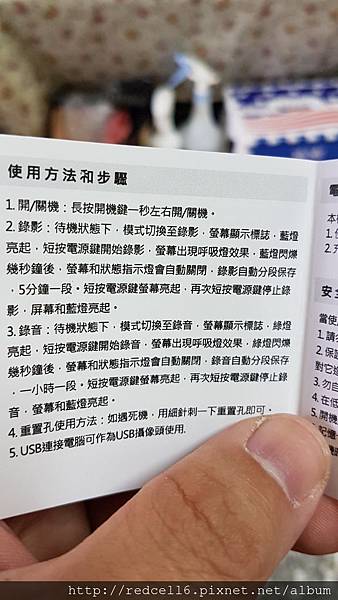 使用方法和步驟
1. 開/關機：長按開機鍵一秒左右開/關機。
2. 錄影：待機狀態下，模式切換至錄影，螢幕顯示標誌，藍燈
亮起，短按電源鍵開始錄影，螢幕出現呼吸燈效果，藍燈閃爍
幾秒鐘後，螢幕和狀態指示燈會自動關閉，錄影自動分段保存
，5分鐘一段。短按電源鍵螢幕亮起，再次短按電源鍵停止錄
影，屏幕和藍燈亮起。
3. 錄音：待機狀態下，模式切換至錄音，螢幕顯示標誌，綠燈
亮起，短按電源鍵開始錄音，螢幕出現呼吸燈效果，綠燈閃爍
幾秒鐘後，螢幕和狀態指示燈會自動關閉，錄音自動分段保存
，一小時一段。短按電源鍵螢幕亮起，再次短按電源鍵停止錄
音，螢幕和藍燈亮起。
4. 重置孔使用方法：如遇死機，用細針刺一下重置孔即可。
5. USB連接電腦可作為USB攝像頭使用.
電
本
1.
2.
安
當使
1. 請
2. 保
對它
3. 勿自
4. 在低
5. 開機
記憶
http://redcell6.pixnet.net/album